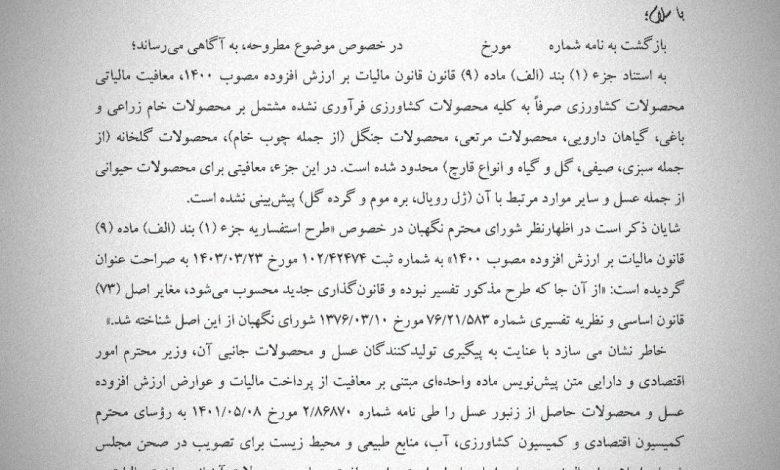 با سلام؛
بازگشت به نامه شماره مورخ در خصوص موضوع مطروحه، به آگاهی می‌رساند؛
به استناد جزء (۱) بند (الف) ماده (۹) قانون قانون مالیات بر ارزش افزوده مصوب ۱۴۰۰، معافیت مالیاتی
محصولات کشاورزی صرفاً به کلیه محصولات کشاورزی فرآوری نشده مشتمل بر محصولات خام زراعی و
باغی، گیاهان دارویی، محصولات مرتعی، محصولات جنگل (از جمله چوب خام)، محصولات گلخانه (از
جمله سبزی، صیفی، گل و گیاه و انواع قارچ) محدود شده است. در این جزء، معافیتی برای محصولات حیوانی
از جمله عسل و سایر موارد مرتبط با آن (ژل رویال، بره موم و گرده گل) پیش‌بینی نشده است.
شایان ذکر است در اظهارنظر شورای محترم نگهبان در خصوص «طرح استفساریه جزء (۱) بند (الف) ماده (۹)
قانون مالیات بر ارزش افزوده مصوب ۱۴۰۰» به شماره ثبت ۱۰۲/۴۲۴۷۴ مورخ ۱۴۰۳/۰۳/۲۳ به صراحت عنوان
گردیده است: «از آن جا که طرح مذکور تفسیر نبوده و قانون‌گذاری جدید محسوب می‌شود، مغایر اصل (۷۳)
قانون اساسی و نظریه تفسیری شماره ۷۶/۲۱/۵۸۳ مورخ ۱۳۷۶/۰۳/۱۰ شورای نگهبان از این اصل شناخته شد.»
خاطر نشان می سازد با عنایت به پیگیری تولیدکنندگان عسل و محصولات جانبی آن، وزیر محترم امور
اقتصادی و دارایی متن پیش‌نویس ماده واحده‌ای مبتنی بر معافیت از پرداخت مالیات و عوارض ارزش افزوده
عسل و محصولات حاصل از زنبور عسل را طی نامه شماره ۲/۸۶۸۷۰ مورخ ۱۴۰۱/۰۵/۰۸ به رؤسای محترم
کمیسیون اقتصادی و کمیسیون کشاورزی، آب، منابع طبیعی و محیط زیست برای تصویب در صحن مجلس